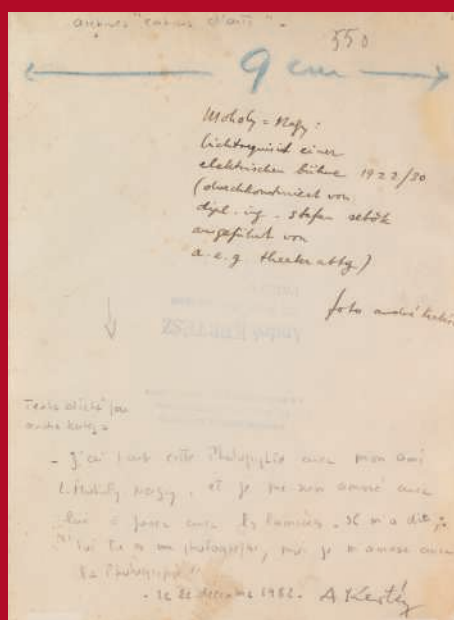 archives "cahiers d'art".
550
9 cm
Moholy=Nagy:
lichtrequisit einer
elektrischen bühne 1922/30
(durchkonstruiert von
dipl.-ing. stefan sebök
ausgeführt von
a.e.g theaterabtg)
foto andré kertész
André KERTÉSZ
Texte dicté par
andré kertész
- J'ai pris cette Photographie avec mon ami
L. Moholy Nagy, et je me suis amusé avec
lui à jouer avec les lumières. Il m'a dit :
toi tu es un photographe, moi je m'amuse avec
la Photographie"
- 1982. A Kertész